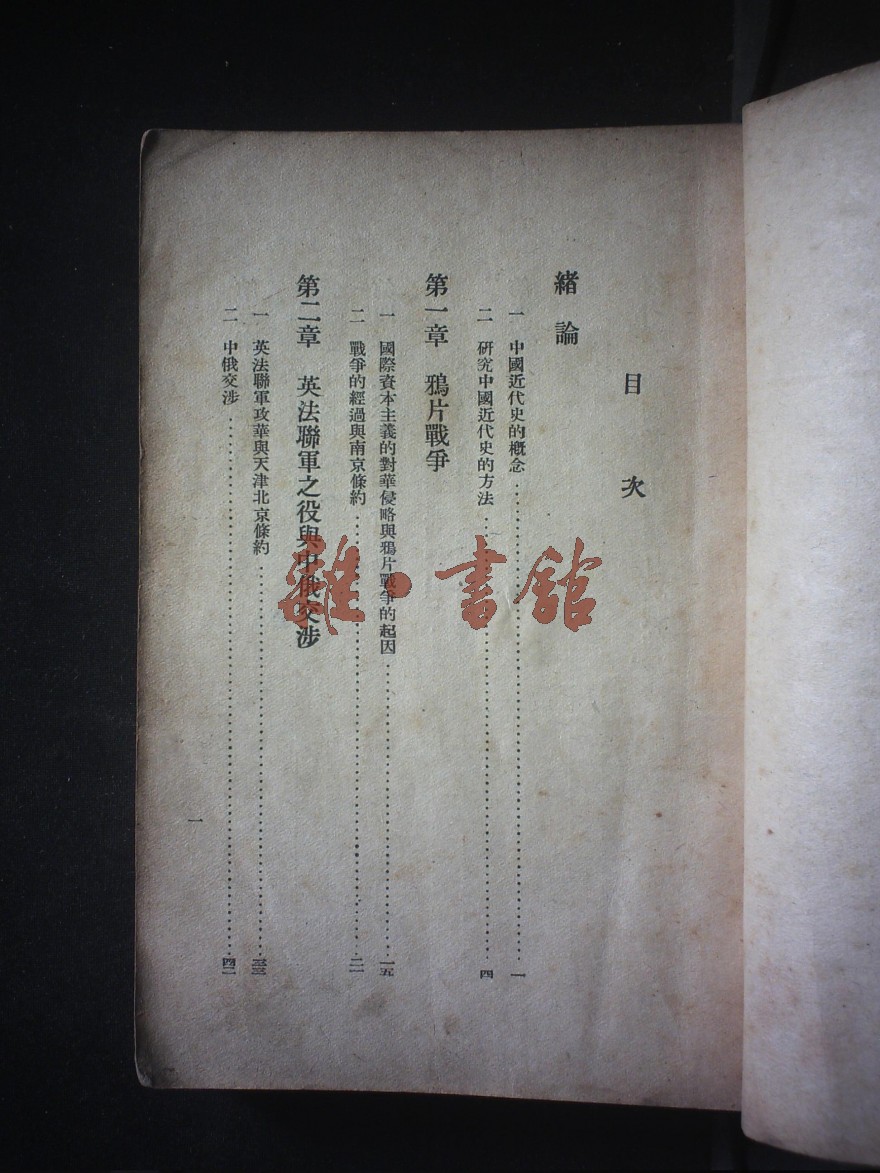 目次
緒論
一 中國近代史的概念……一
二 研究中國近代史的方法……四
第一章 鴉片戰爭
一 國際資本主義的對華侵略與鴉片戰爭的起因……一五
二 戰爭的經過與南京條約……二一
第二章 英法聯軍之役與中俄交涉
一 英法聯軍攻華與天津北京條約……三三
二 中俄交涉……四二
一
雜·書館